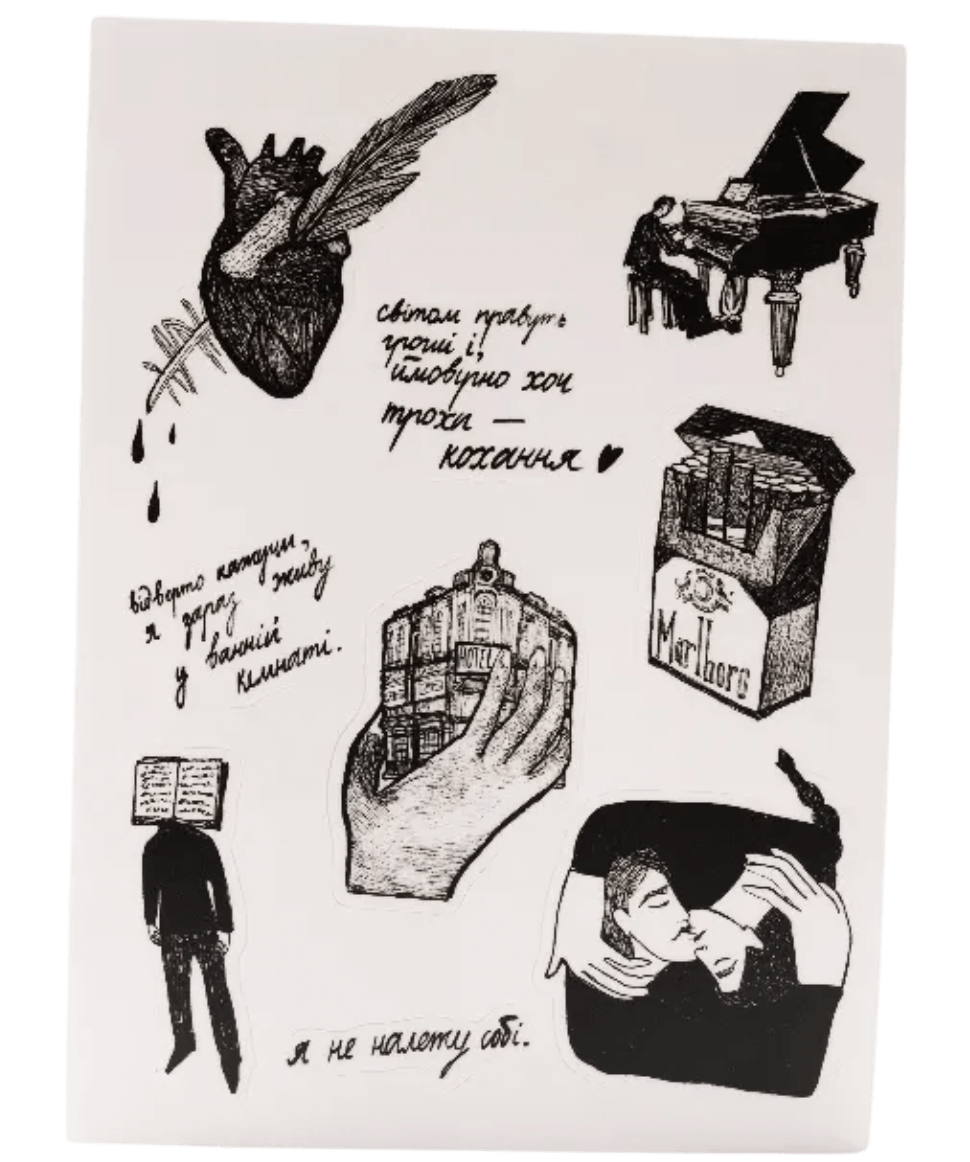 світом правлять
гроші і,
ймовірно хоч
трохи —
кохання ♥
Marlboro
відверто кажучи,
я зараз живу
у ванній
кімнаті.
HOTEL
я не належу собі.